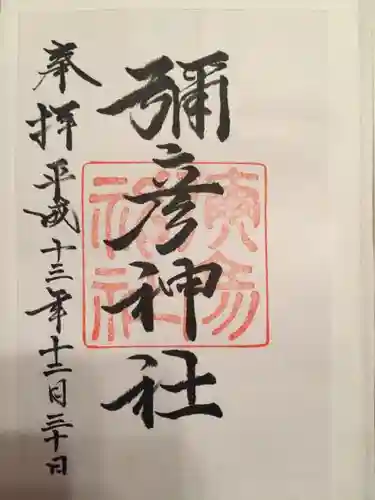 彌彦神社
奉拝 平成十三年十二月三十日